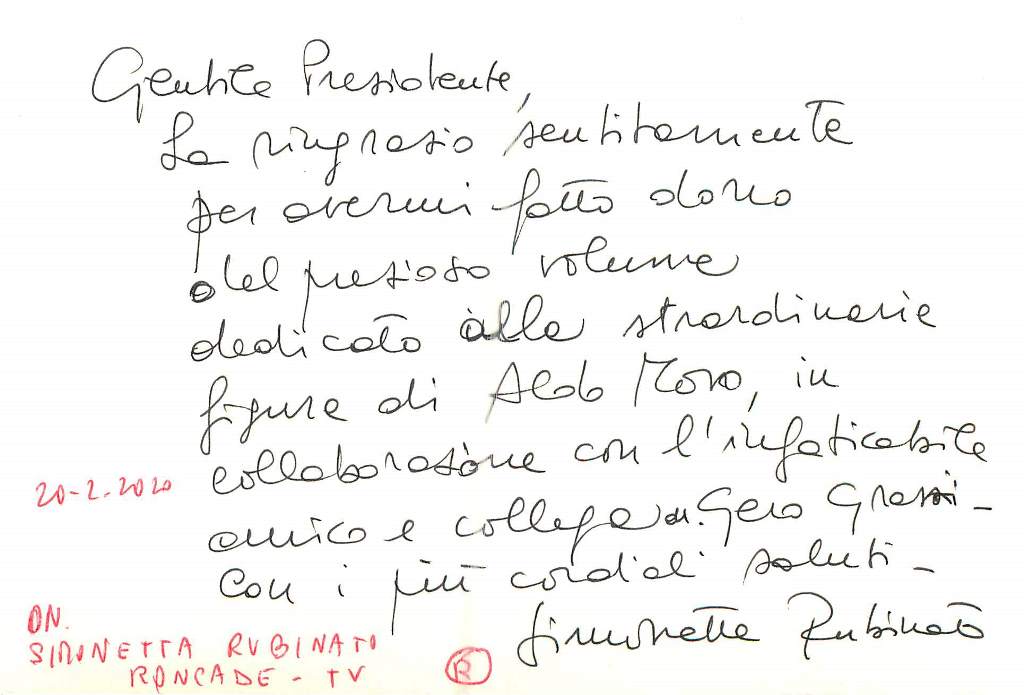 Gentile Presidente,
La ringrazio sentitamente
per avermi fatto dono
del prezioso volume
dedicato alla straordinaria
figura di Aldo Moro, in
collaborazione con l'infaticabile
20-2-2020
amico e collega on. Gero Grassi -
Con i più cordiali saluti -
Simonetta Rubinato
ON.
SIMONETTA RUBINATO
RONCADE - TV
R